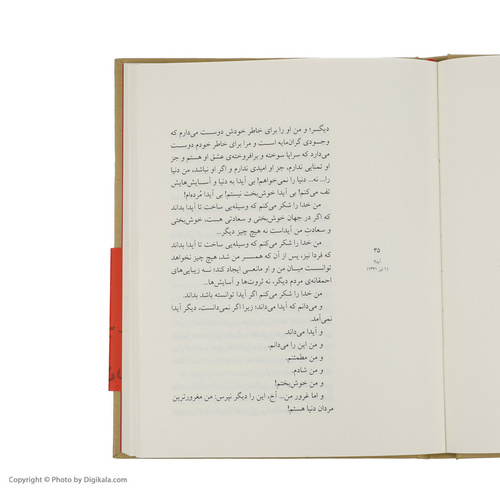 دیگر؛ و من او را برای خاطر خودش دوست می‌دارم که
وجودی گران‌مایه است و مرا برای خاطر خودم دوست
می‌دارد که سراپا سوخته و برافروخته‌ی عشق او هستم و جز
او تمنایی ندارم، جز او امیدی ندارم و اگر او نباشد، من دنیا
را... نه... دنیا را نمی‌خواهم! بی آیدا به دنیا و آسایش‌هایش
تف می‌کنم! بی آیدا خوش‌بخت نیستم! بی آیدا مُرده‌ام!
من خدا را شکر می‌کنم که وسیله‌یی ساخت تا آیدا بداند
که اگر در جهان خوش‌بختی و سعادتی هست، خوش‌بختی
و سعادت من آیداست نه هیچ چیز دیگر...
من خدا را شکر می‌کنم که وسیله‌یی ساخت تا آیدا بداند
که فردا نیز، پس از آن که همسر من شد، هیچ چیز نخواهد
توانست میان من و او مانعی ایجاد کند؛ نه زیبایی‌های
احمقانه‌ی مردم دیگر، نه ثروت‌ها و آسایش‌ها...
من خدا را شکر می‌کنم اگر آیدا توانسته باشد بداند.
و می‌دانم که آیدا می‌داند؛ زیرا اگر نمی‌دانست، دیگر آیدا
نمی‌آمد.
و آیدا می‌داند.
و من این را می‌دانم.
و من مطمئنم.
و من شادم.
و من خوش‌بختم!
و اما غرور من... آخ، این را دیگر نپرس: من مغرورترین
مردان دنیا هستم!
۳۵
آیدا
(۱ تیر ۱۳۴۱)
Copyright © Photo by Digikala.com